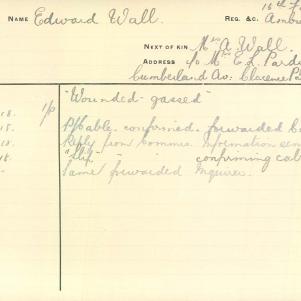 NAME Edward Wall. REG. &C. 16th F
NEXT OF KIN Mrs A. Wall.
ADDRESS c/o Mrs E. L. Pard
Cumberland Av: Clarence P
18. 1/0 "Wounded - gassed"
18. P/Cable confirmed. forwaded
18. Reply from Comms. Information sen
18. "Slip" " " confirming cab
Same forwaded Inquirer.